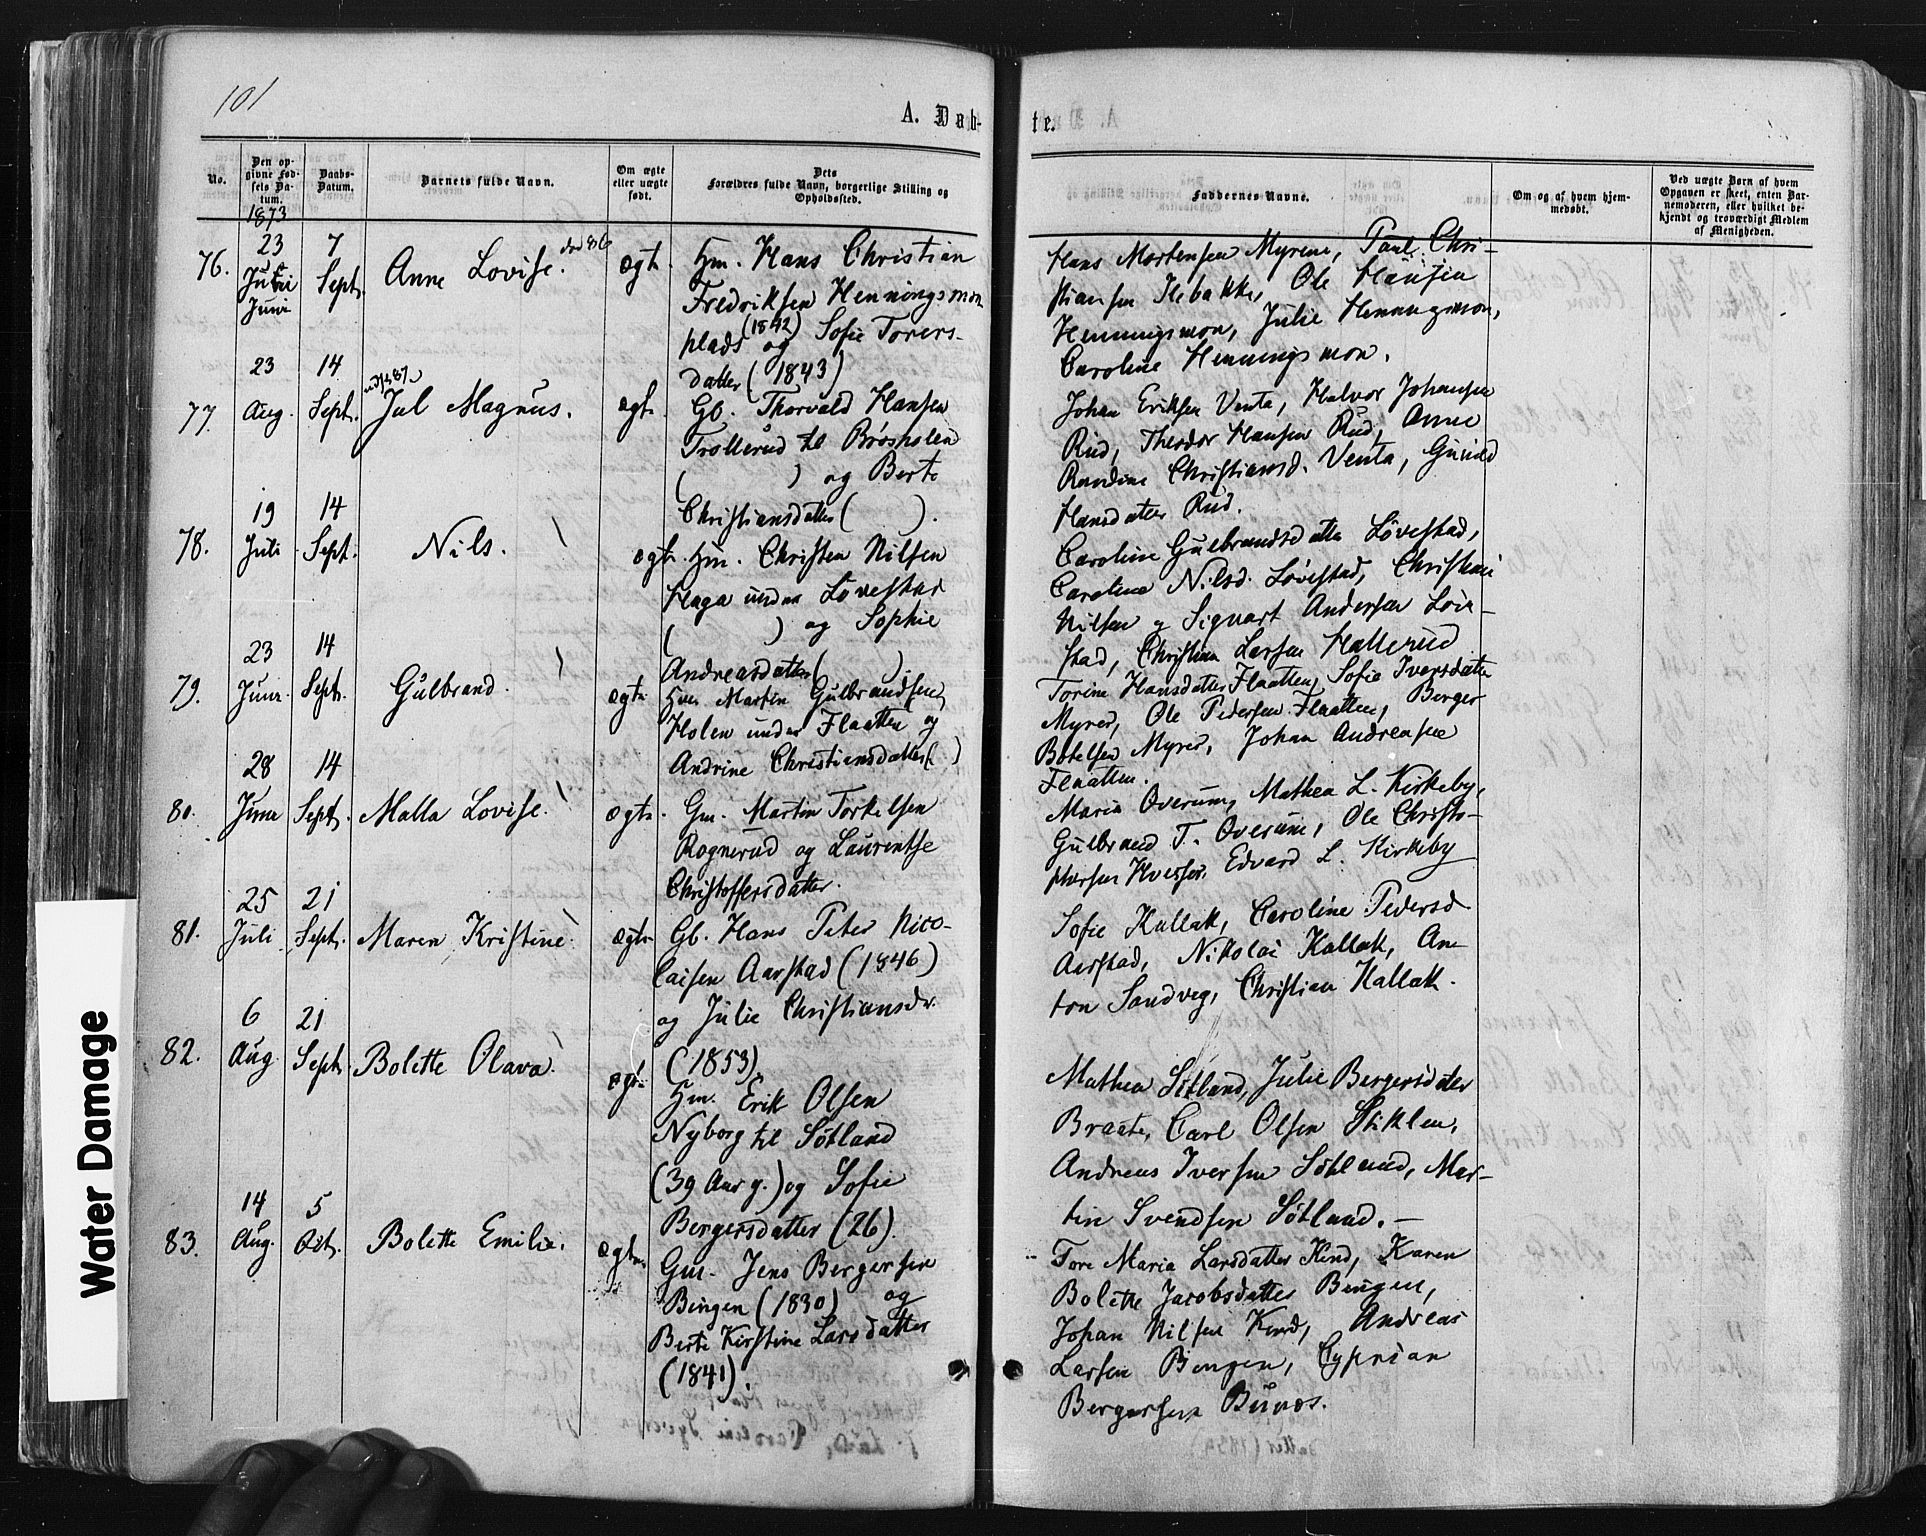 101
A. Dåb-
te.
No.
Den op-
givne Fød-
sels Da-
tum.
Daabs-
Datum.
Barnets fulde Navn.
Om ægte
eller uægte
født.
Dets
Forældres fulde Navn, borgerlige Stilling og
Opholdssted.
Faddernes Navne.
Om og af hvem hjem-
medøbt.
Ved uægte Børn af hvem
Opgaven er skeet, enten Bar-
nemoderen, eller hvilket be-
kjendt og troværdigt Medlem
af Menigheden.
1873
76.
23
Juni
7
Sept.
Anne Lovise.
ægte
Hm. Hans Christian
Fredriksen Henningsmon
plads (1842) og Sofie Torers-
datter (1843)
Hans Mortensen Myrene, Paul Chri-
stiansen Ilebakke, Ole Hansen
Henningsmon, Julie Henningsmon,
Caroline Henningsmon.
77.
23
Aug.
14
Sept.
Jul Magnus.
ægte
Gb. Thorvald Hansen
Trollerud til Brosholen
( ) og Berte
Christiansdatter ( ).
Johan Eriksen Venta, Halvor Johansen
Rud, Theodor Hansen Rud, Anne
Randine Christiansd. Venta, Gunild
Hansdatter Rud.
78.
19
Juli
14
Sept.
Nils.
ægte
Hm. Christen Nilsen
Haga under Løvestad
( ) og Sophie
Andreasdatter ( ).
Caroline Gulbrandsdatter Løvestad,
Caroline Nilsd. Løvestad, Christian
Nilsen og Sigvart Andersen Løve-
stad, Christian Larsen Hallerud
79.
23
Juni
14
Sept.
Gulbrand.
ægte
Hm. Martin Gulbrandsen
Holen under Flaatten og
Andrine Christiansdatter ( )
Torine Hansdatter Flaatten, Sofie Iversdatter
Myrer, Ole Pedersen Flaatten, Berger
Botelsen Myrer, Johan Andreasen
Flaatten.
80.
28
Juni
14
Sept.
Malla Lovise.
ægte
Gm. Martin Torkelsen
Rognerud og Laurentse
Christoffersdatter.
Maria Overum, Mathea L. Kirkeby,
Gulbrand T. Overum, Ole Christo-
phersen Edvard L. Kirkeby
81.
25
Juli
21
Sept.
Maren Kristine
ægte
Gb. Hans Peter Nico-
laisen Aarstad (1846)
og Julie Christiansdr.
(1853)
Sofie Kallak, Caroline Pedersd
Aarstad, Nikolai Kallak, An-
ton Sandveg, Christian Kallak.
82.
6
Aug
21
Sept
Bolette Olava
ægte
Hm. Erik Olsen
Nyborg til Sötland
(39 Aar g.) og Sofie
Bergersdatter (26).
Mathea Sötland, Julie Bergersdatter
Braate, Carl Olsen Stiklen,
Andreas Iversen Sötland, Mar-
tin Svendsen Sötland. —
83.
14
Aug.
5
Oct.
Bolette Emilie.
ægte
Gm. Jens Bergersen
Bingen (1830) og
Berte Kirstine Larsdatter
(1841).
Tore Maria Larsdatter Kind, Karen
Bolette Jacobsdatter Bingen,
Johan Nilsen Kind, Andreas
Larsen Bingen, Cyprian
Bergersen Bunæs.
Water Damage